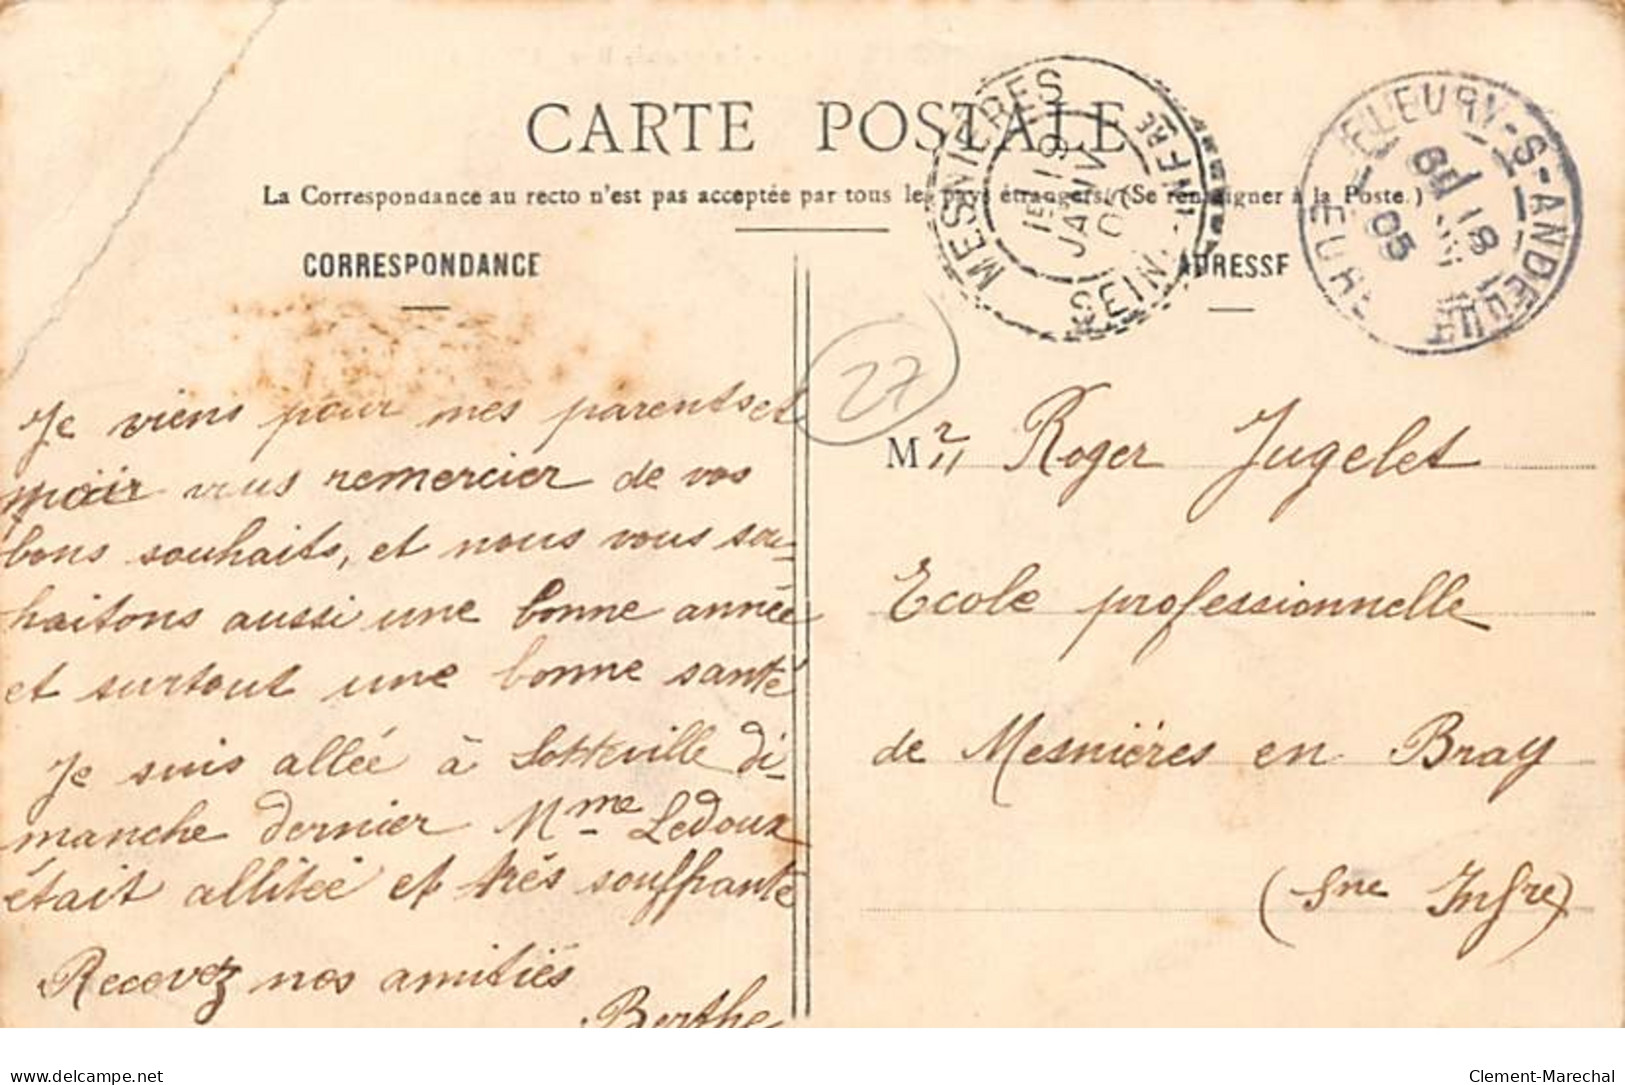 CARTE POSTALE
La Correspondance au recto n'est pas acceptée par tous les pays étrangers. (Se renseigner à la Poste.)
CORRESPONDANCE
ADRESSE
MESNIERES
15 19
JANV
SEINE-INFRE
FLEURY-S-ANDELLE
6E 18
05
EURE
27
Je viens pour mes parents et
moi vous remercier de vos
bons souhaits, et nous vous sou-
haitons aussi une bonne année
et surtout une bonne santé
Je suis allée à Sotteville di-
manche dernier Mme Ledoux
était alitée et très souffrante
Recevez nos amitiés
Berthe
Mr Roger Jugelet
Ecole professionnelle
de Mesnières en Bray
(Sne Infre)
delcampe.net
Clement-Marechal